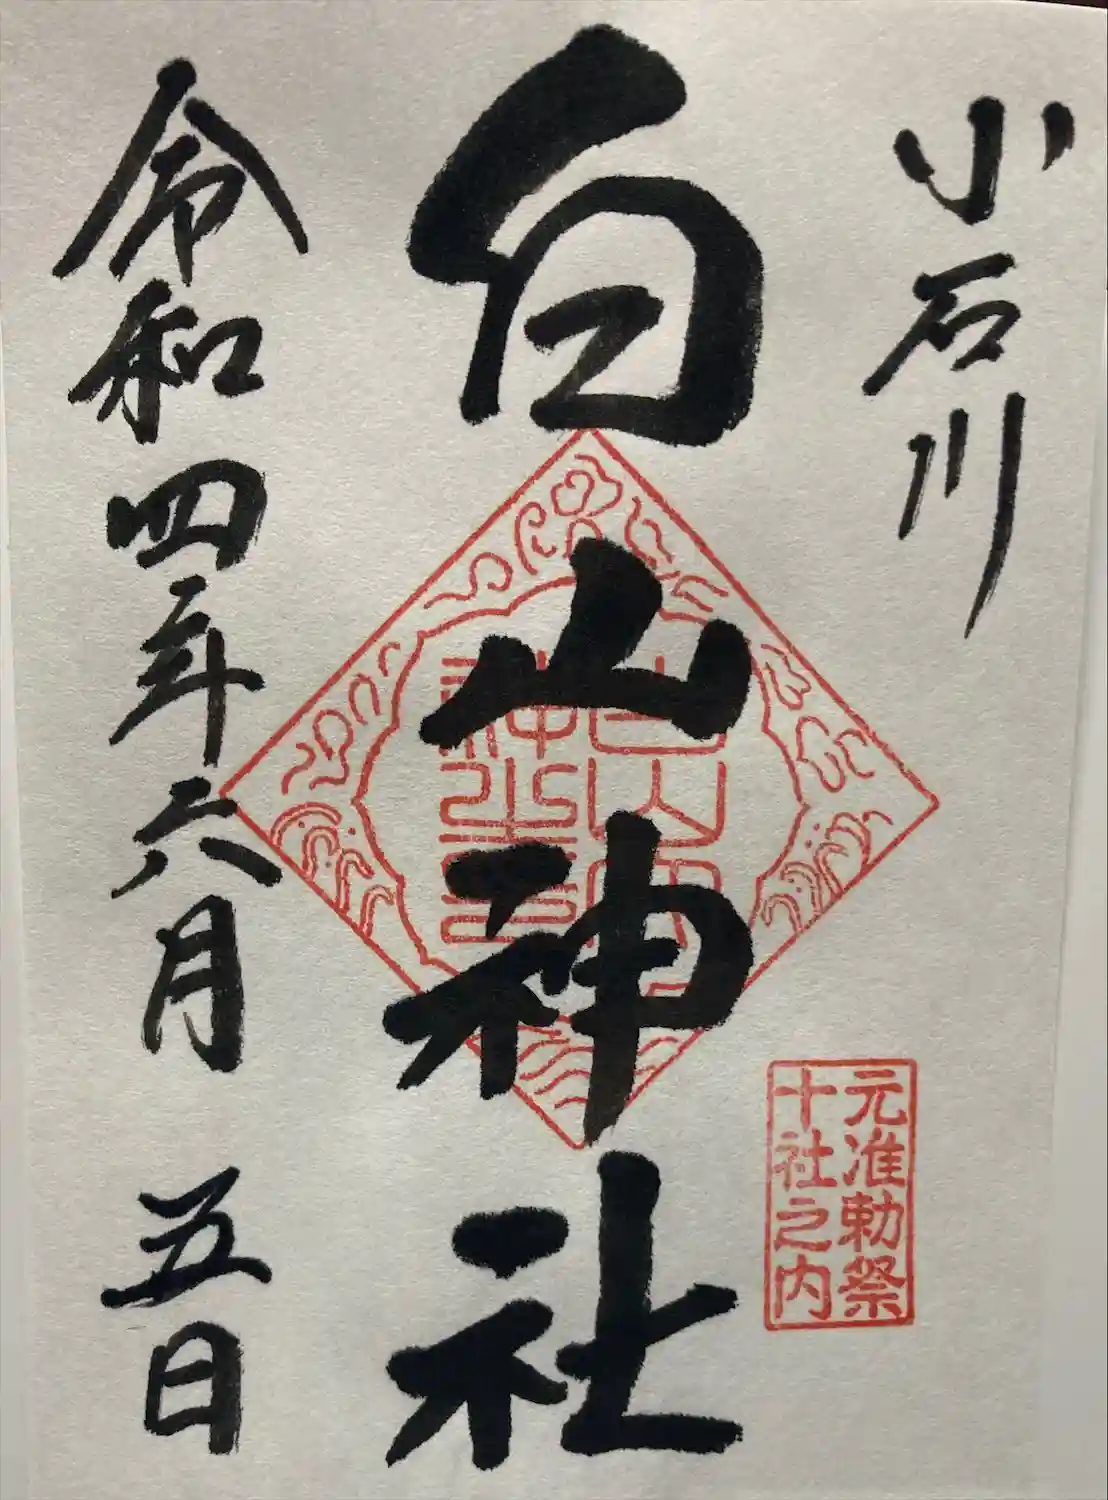 小石川
白山神社
令和四年六月五日
元准勅祭
十社之内